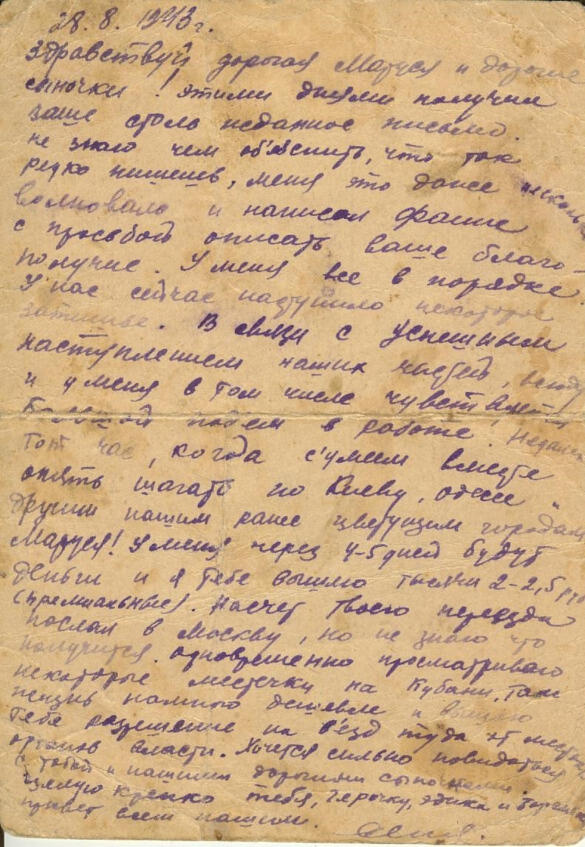 28. 8. 1943 г.
Здравствуй дорогая Маруся и дорогие
сыночки! этими днями получил
ваше столь недавное письмо.
не знаю чем об'яснить, что так
редко пишешь, меня это даже
волновало и написал Фание
с просьбой описать ваше благо
получие. У меня все в порядке
У нас сейчас наступило некоторое
затишье. В связи с успешным
наступлением наших частей, везде
и у меня в том числе чувствуется
большой подъем в работе. Недалек
тот час, когда с'умеем вместе
опять шагать по Киеву, Одессе и
другим нашим ранее цветущим городам
Маруся! У меня через 4-5 дней будут
деньги и я тебе вышлю тысячи 2-2,5 руб
(премиальные). Насчет твоего переезда
послал в Москву, но не знаю что
получится. одновременно просматриваю
некоторые местечки на Кубани, там
жизнь намного дешевле и вышлю
тебе разрешение на в'езд туда от местных
органов власти. Хочется сильно повидаться
с тобой и нашими дорогими сыночками.
Целую крепко тебя, Герочку, Эдика и
привет всем нашим.